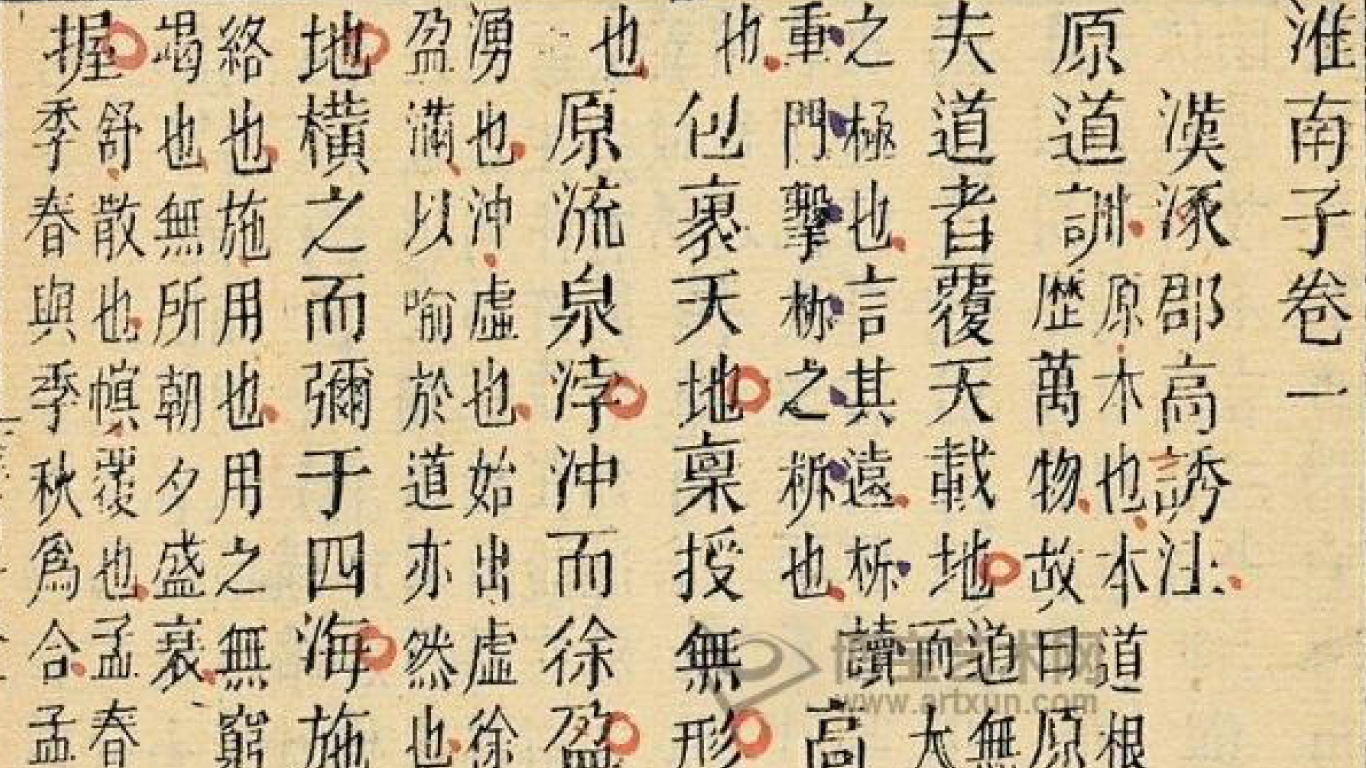 淮南子卷一
漢涿郡高誘注
原道訓
原本也本道根
歷萬物故曰原
夫道者覆天載地
道無
而大
之極也言其遠柝讀
重門擊柝之柝也
高
也包裹天地稟授無形
也原流泉浡沖而徐盈
湧也沖虛也始出虛徐
盈滿以喻於道亦然也
地橫之而彌于四海施
絡也施用也用之無窮
竭也無所朝夕盛衰
握
舒散也幎覆也孟春
季春與季秋爲合孟
博宝艺术网
www.artxun.com